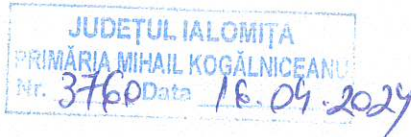 JUDEȚUL IALOMIȚA
PRIMĂRIA MIHAIL KOGĂLNICEANU
Nr. 3760 Data 16.04.2024